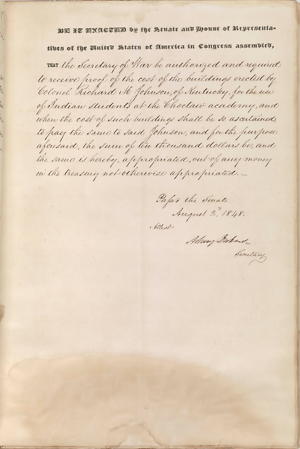 BE IT ENACTED by the Senate and House of Representa-
tives of the United States of America in Congress assembled,
THAT the Secretary of War be authorized and required
to receive proof of the cost of the buildings erected by
Colonel Richard M. Johnson, of Kentucky, for the use
of Indian students at the Choctaw academy, and
when the cost of such buildings shall be so ascertained
to pay the same to said Johnson, and for the purpose
aforesaid, the sum of ten thousand dollars be, and
the same is hereby, appropriated, out of any money
in the treasury not otherwise appropriated.
Pass'd the Senate
August 3d, 1848.
Attest
Asbury Dickens
Secretary